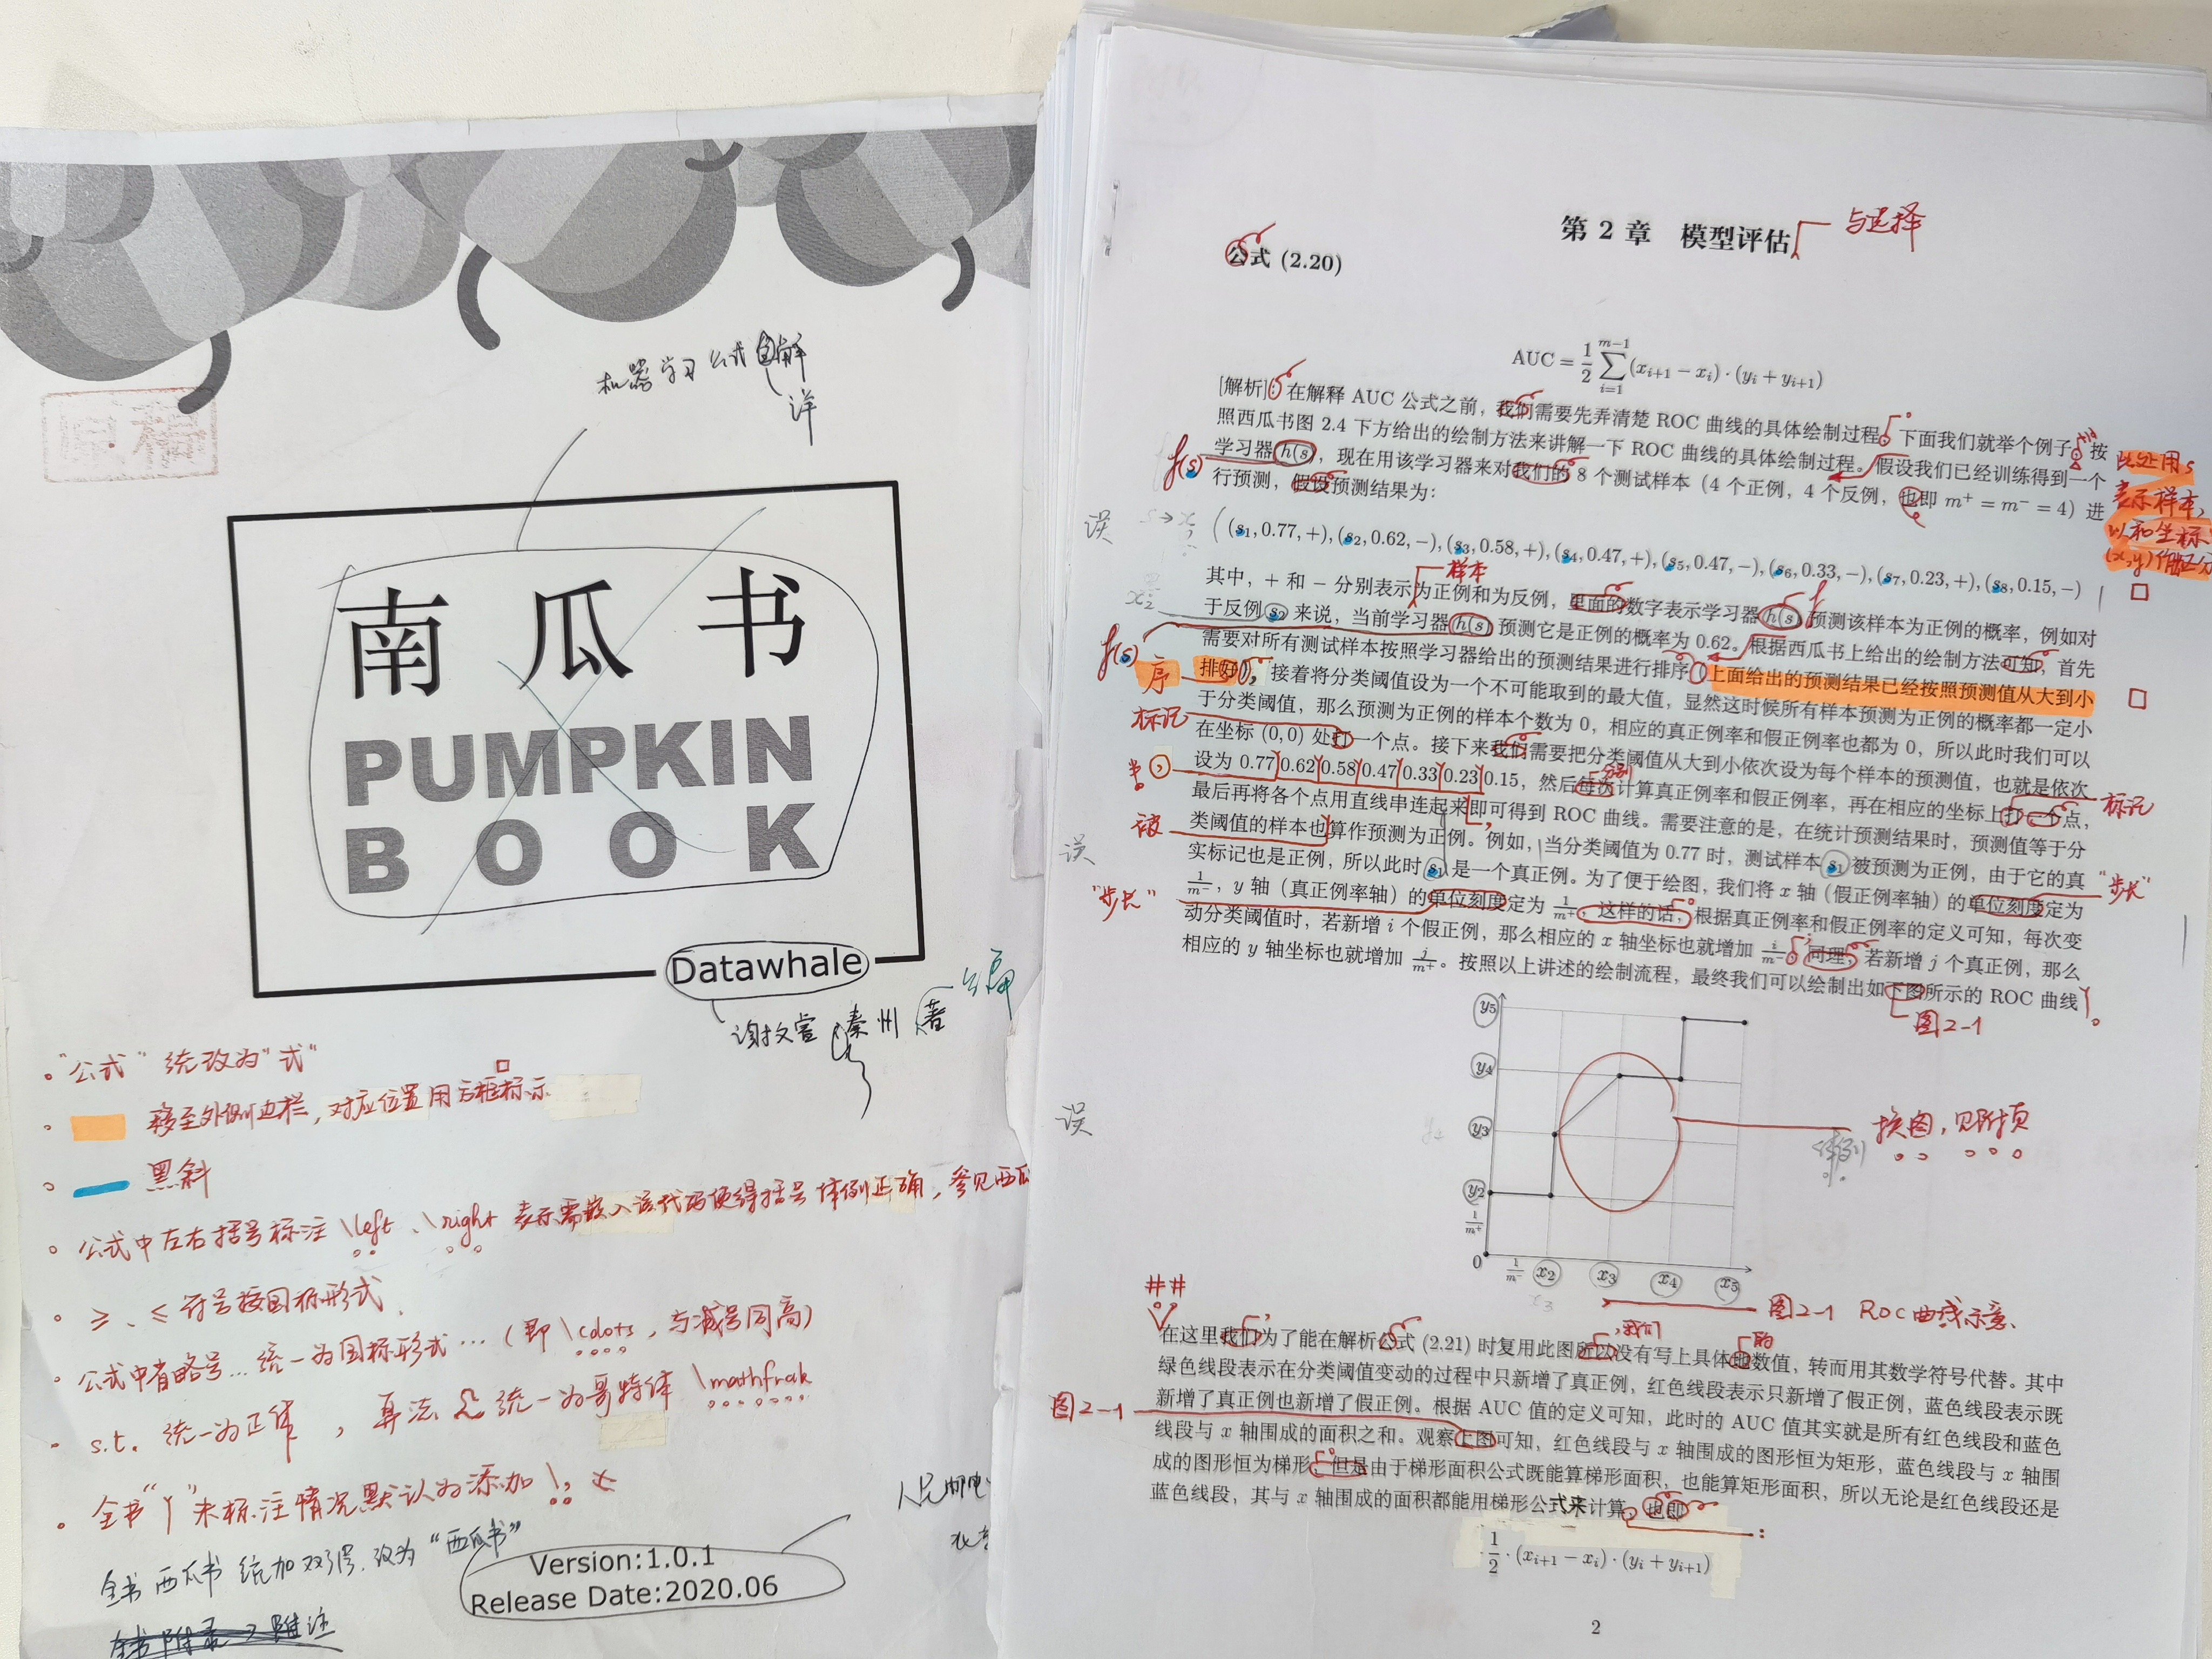 机器学习公式图解
详
原稿
南瓜书
PUMPKIN
BOOK
Datawhale
谢文睿 秦州 著
。"公式"统改为"式"
。移至外侧边栏，对应位置用方框标示
。黑斜
。公式中左右括号标注 \left 、\right 表示需嵌入该代码使得括号体例正确，参见西瓜
。≥、≤ 符号按国标形式.
公式中省略号…统一为国标形式…（即 \cdots，与减号同高）
s.t. 统一为正体，算法 统一为哥特体 \mathfrak
全书"丫"未标注情况默认为添加
全书 西瓜书 统加双引号，改为"西瓜书"
Version:1.0.1
Release Date:2020.06
人民邮电
北京
全书附录→附注
第 2 章 模型评估
与选择
公式 (2.20)
AUC = 1/2 ∑_{i=1}^{m−1} (x_{i+1} − x_i) · (y_i + y_{i+1})
[解析]：在解释 AUC 公式之前，我们需要先弄清楚 ROC 曲线的具体绘制过程。下面我们就举个例子，按
照西瓜书图 2.4 下方给出的绘制方法来讲解一下 ROC 曲线的具体绘制过程。假设我们已经训练得到一个
学习器 h(s)，现在用该学习器来对我们的 8 个测试样本（4 个正例，4 个反例，也即 m⁺ = m⁻ = 4）进
行预测，假设预测结果为：
f(s)
此处用s
表示样本，
以和坐标
(x,y)作出区分
误
s→x
(s₁, 0.77, +), (s₂, 0.62, −), (s₃, 0.58, +), (s₄, 0.47, +), (s₅, 0.47, −), (s₆, 0.33, −), (s₇, 0.23, +), (s₈, 0.15, −)
样本
其中，+ 和 − 分别表示为正例和为反例，里面的数字表示学习器 h(s) 预测该样本为正例的概率，例如对
于反例 s₂ 来说，当前学习器 h(s) 预测它是正例的概率为 0.62。根据西瓜书上给出的绘制方法可知，首先
需要对所有测试样本按照学习器给出的预测结果进行排序，上面给出的预测结果已经按照预测值从大到小
排好，接着将分类阈值设为一个不可能取到的最大值，显然这时候所有样本预测为正例的概率都一定小
于分类阈值，那么预测为正例的样本个数为 0，相应的真正例率和假正例率也都为 0，所以此时我们可以
在坐标 (0,0) 处打一个点。接下来我们需要把分类阈值从大到小依次设为每个样本的预测值，也就是依次
设为 0.77、0.62、0.58、0.47、0.33、0.23、0.15，然后每次计算真正例率和假正例率，再在相应的坐标上打一个点，
最后再将各个点用直线串连起来即可得到 ROC 曲线。需要注意的是，在统计预测结果时，预测值等于分
类阈值的样本也算作预测为正例。例如，当分类阈值为 0.77 时，测试样本 s₁ 被预测为正例，由于它的真
实标记也是正例，所以此时 s₁ 是一个真正例。为了便于绘图，我们将 x 轴（假正例率轴）的单位刻度定为
1/m⁻，y 轴（真正例率轴）的单位刻度定为 1/m⁺，这样的话，根据真正例率和假正例率的定义可知，每次变
动分类阈值时，若新增 i 个假正例，那么相应的 x 轴坐标也就增加 i/m⁻；同理，若新增 j 个真正例，那么
相应的 y 轴坐标也就增加 j/m⁺。按照以上讲述的绘制流程，最终我们可以绘制出如下图所示的 ROC 曲线
f(s)
序
标记
被
"步长"
分别
标记
"步长"
误
图2-1
y₅
y₄
y₃
y₂
1/m⁺
0
1/m⁻ x₂ x₃ x₄ x₅
误
换图，见附页
图2-1 ROC曲线示意
##
，我们
的
在这里我们为了能在解析公式 (2.21) 时复用此图所以没有写上具体地数值，转而用其数学符号代替。其中
绿色线段表示在分类阈值变动的过程中只新增了真正例，红色线段表示只新增了假正例，蓝色线段表示既
新增了真正例也新增了假正例。根据 AUC 值的定义可知，此时的 AUC 值其实就是所有红色线段和蓝色
线段与 x 轴围成的面积之和。观察上图可知，红色线段与 x 轴围成的图形恒为矩形，蓝色线段与 x 轴围
成的图形恒为梯形，但是由于梯形面积公式既能算梯形面积，也能算矩形面积，所以无论是红色线段还是
蓝色线段，其与 x 轴围成的面积都能用梯形公式来计算，也即
图2-1
1/2 · (x_{i+1} − x_i) · (y_i + y_{i+1})
2